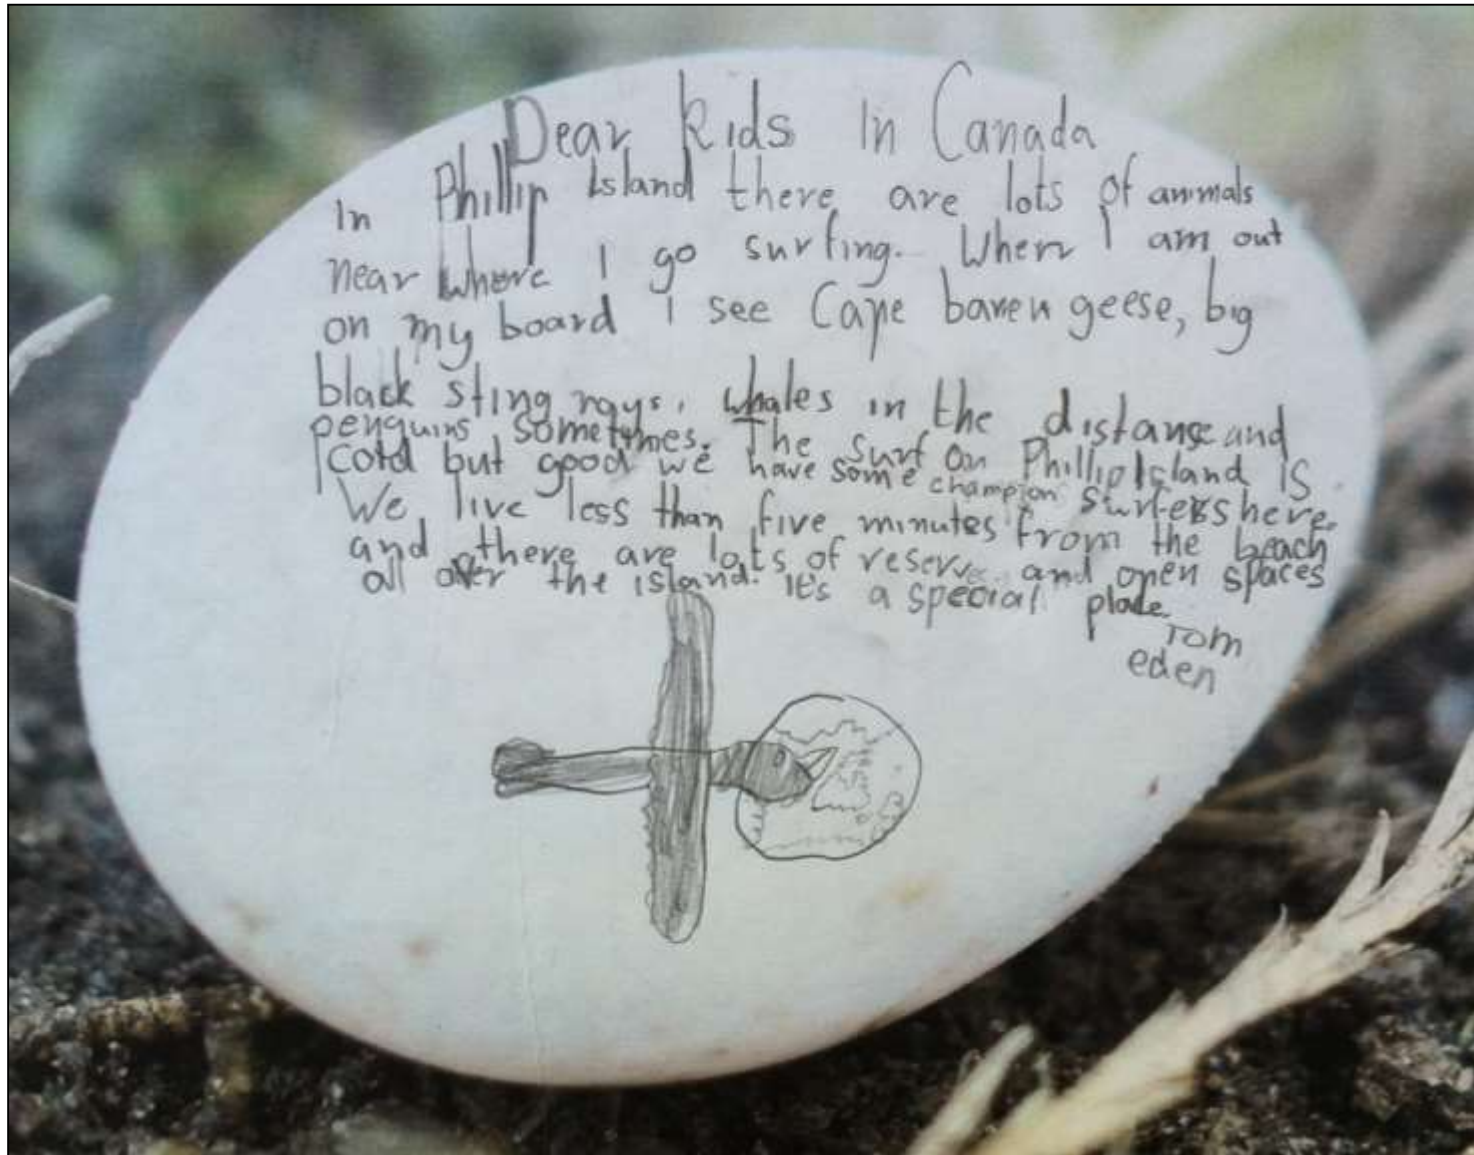 Dear kids in Canada
In Phillip Island there are lots of animals
near where I go surfing. When I am out
on my board I see Cape baren geese, big
black sting rays, whales in the distance and
penguins sometimes. The surf on Phillip Island is
cold but good we have some champion surfers here.
We live less than five minutes from the beach
and there are lots of reserve and open spaces
all over the island. it's a special place.
Tom
eden